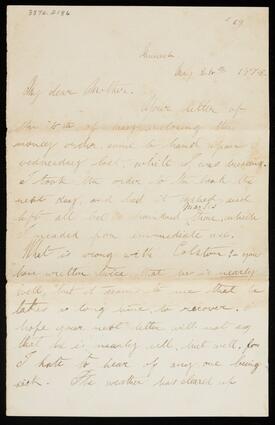 3892.2186
69
Munich
May 24th 187
My dear Mother.
Your letter of
the of May, inclosing the
money order, came to hand
wednesday last, while I was
I took the order to the bank the
next day, and had it cashed, and
left all but a hundred Marks there, which
I needed for immediate use.
What is wrong with Colston? you
have written twice that he is nearly
well, but it seems to me that he
takes so long time to recover. I
hope your next letter will not say
that he is nearly well, but well, for
I hate to hear of any one being
sick. The weather has cleared up